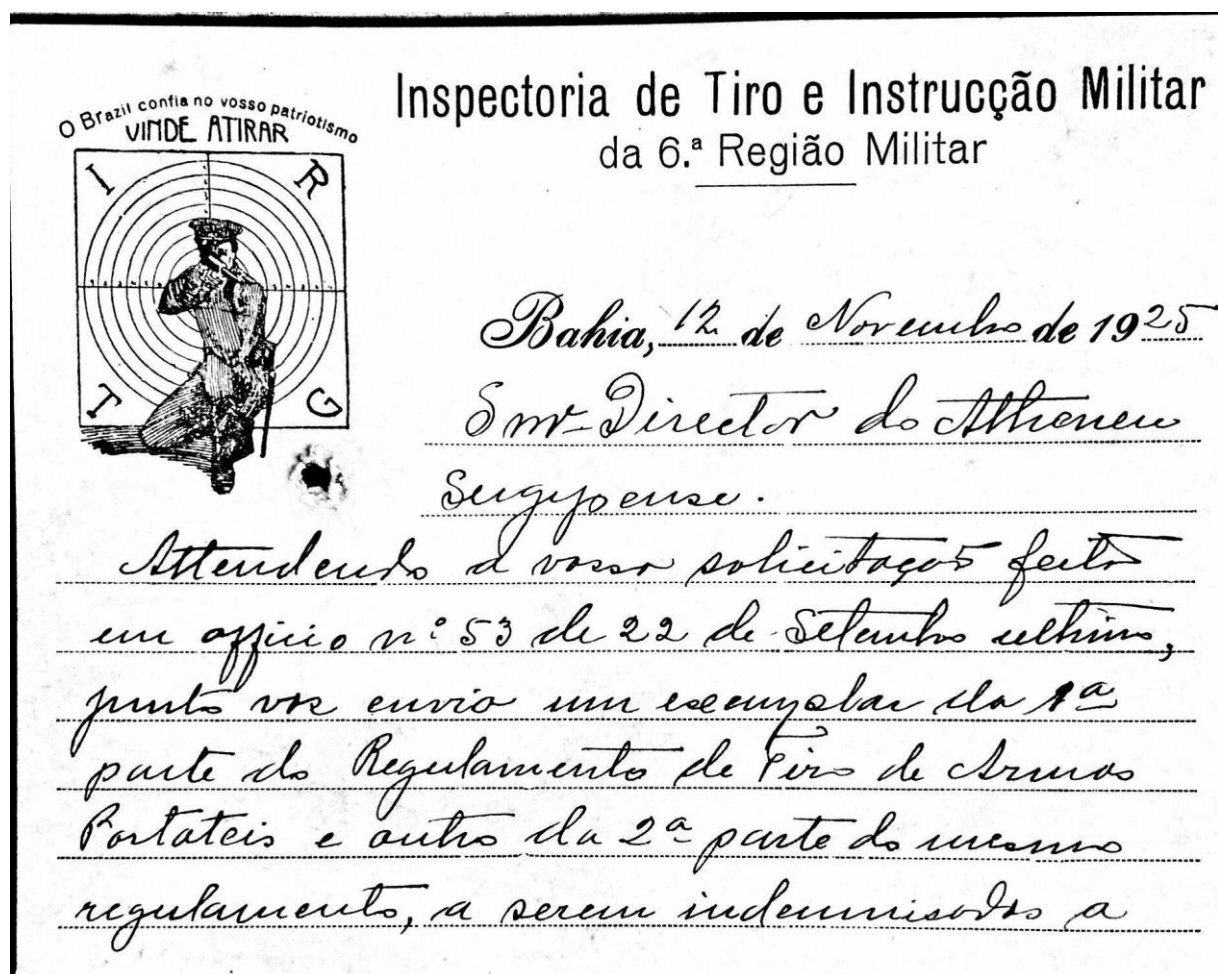 O Brazil confia no vosso patriotismo
VINDE ATIRAR
I R
T G
Inspectoria de Tiro e Instrucção Militar
da 6.ª Região Militar
Bahia, 12 de Novembro de 1925
Snr. Director do Atheneu
Sergipense.
Attendendo a vossa solicitação feita
em officio nº 53 de 22 de Setembro ultimo,
junto vos envio um exemplar da 1ª
parte do Regulamento de Tiro de Armas
Portateis e outro da 2ª parte do mesmo
regulamento, a serem indemnisados a